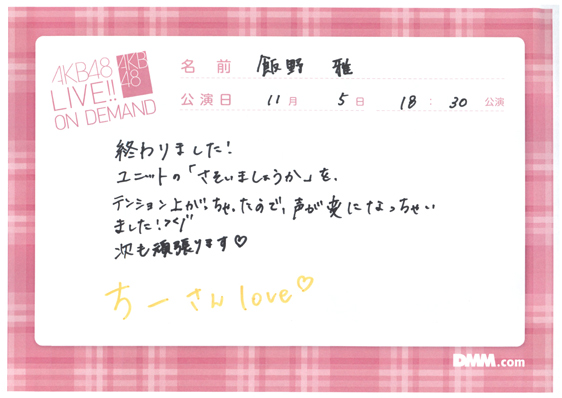 AKB48
LIVE!!
ON DEMAND
AKB
48
名 前 飯野 雅
公演日 11月 5日 18:30 公演
終わりました!
ユニットの「さそいましょうか」を、
テンション上がっちゃったので、声が変になっちゃい
ました!><''
次も頑張ります♡
ちーさんlove♡
DMM.com